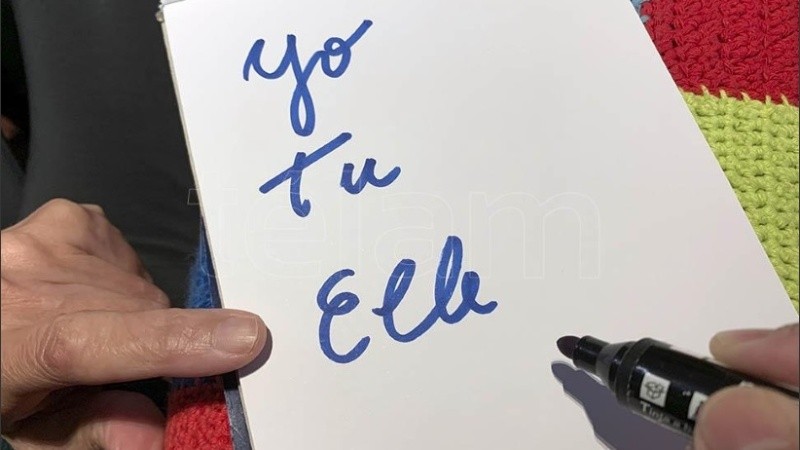 yo
tu
Elle
telam